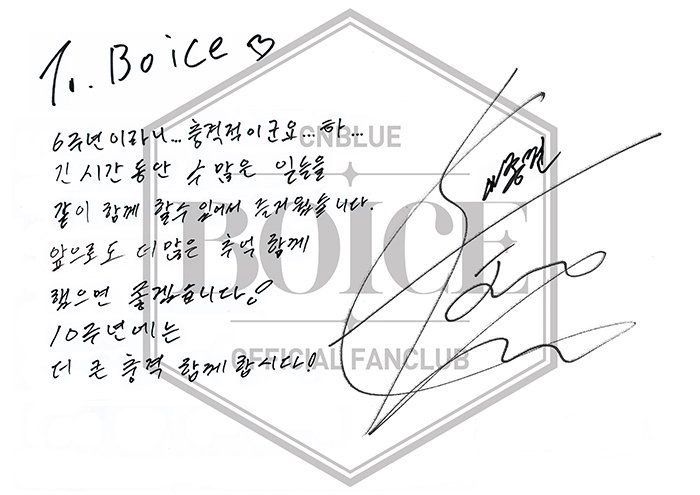 To. Boice ♡
6주년이라니...충격적이군요...하...
CNBLUE
긴 시간동안 수 많은 일들을
이종현
같이 함께 할수 있어서 즐거웠습니다.
앞으로도 더많은 추억 함께
BOICE
했으면 좋겠습니다!
10주년에는
OFFICIAL FANCLUB
더 큰 충격 함께 합시다!